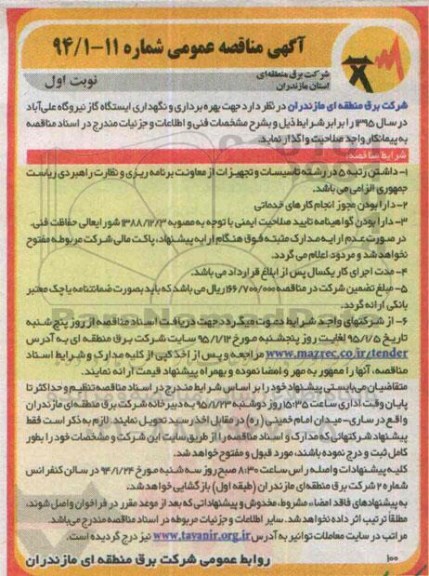 آگهی مناقصه عمومی شماره ۱۱-۹۴/۱
شرکت برق منطقه‌ای
استان مازندران
نوبت اول
شرکت برق منطقه ای مازندران در نظر دارد جهت بهره برداری و نگهداری ایستگاه گاز نیروگاه علی‌آباد
در سال ۱۳۹۵ را برابر شرایط ذیل و بشرح مشخصات فنی و اطلاعات و جزئیات مندرج در اسناد مناقصه
به پیمانکار واجد صلاحیت واگذار نماید.
شرایط مناقصه:
۱- داشتن رتبه ۵ در رشته تاسیسات و تجهیزات از معاونت برنامه ریزی و نظارت راهبردی ریاست
جمهوری الزامی می باشد.
۲- دارا بودن مجوز انجام کارهای خدماتی
۳- دارا بودن گواهینامه تایید صلاحیت ایمنی با توجه به مصوبه ۱۳۸۸/۱۲/۳ شورایعالی حفاظت فنی.
در صورت عدم ارایه مدارک مثبته فوق هنگام ارایه پیشنهاد، پاکت مالی شرکت مربوطه مفتوح
نخواهد شد و مردود اعلام می گردد.
۴- مدت اجرای کار یکسال پس از ابلاغ قرارداد می باشد.
۵- مبلغ تضمین شرکت در مناقصه ۱۶۶/۷۰۰/۰۰۰ ریال می باشد که باید بصورت ضمانتنامه یا چک معتبر
بانکی ارائه گردد.
۶- از شرکتهای واجد شرایط دعوت میگردد جهت دریافت اسناد مناقصه از روز پنج شنبه
تاریخ ۹۵/۱/۵ لغایت روز پنجشنبه مورخ ۹۵/۱/۱۲ سایت شرکت برق منطقه ای به آدرس
www.mazrec.co.ir/tender مراجعه و پس از اخذ کپی از کلیه مدارک و شرایط اسناد
مناقصه، آنها را ممهور به مهر و امضا نموده و بهمراه پیشنهاد قیمت ارائه نمایند.
متقاضیان می‌بایستی پیشنهاد خود را بر اساس شرایط مندرج در اسناد مناقصه تنظیم و حداکثر تا
پایان وقت اداری ساعت ۱۵:۳۵ روز دوشنبه ۹۵/۱/۲۳ به دبیرخانه شرکت برق منطقه ای مازندران
واقع در ساری- میدان امام خمینی (ره) در مقابل اخذ رسید تحویل نمایند. لازم به ذکر است فقط
پیشنهاد شرکتهائی که مدارک و اسناد مناقصه را از طریق سایت این شرکت و مشخصات خود را بطور
کامل ثبت و درج نموده باشند، مورد قبول و مفتوح خواهد شد.
کلیه پیشنهادات واصله راس ساعت ۸:۳۰ صبح روز سه شنبه مورخ ۹۴/۱/۲۴ در سالن کنفرانس
شماره ۲ شرکت برق منطقه‌ای مازندران (طبقه اول) بازگشایی خواهد شد.
به پیشنهادهای فاقد امضاء، مشروط، مخدوش و پیشنهاداتی که بعد از موعد مقرر در فراخوان واصل شوند،
مطلقاً ترتیب اثر داده نخواهد شد. سایر اطلاعات و جزئیات مربوطه در اسناد مناقصه مندرج می‌باشد.
مراتب در سایت معاملات توانیر به آدرس www.tavanir.org.ir نیز درج گردیده است.
روابط عمومی شرکت برق منطقه ای مازندران